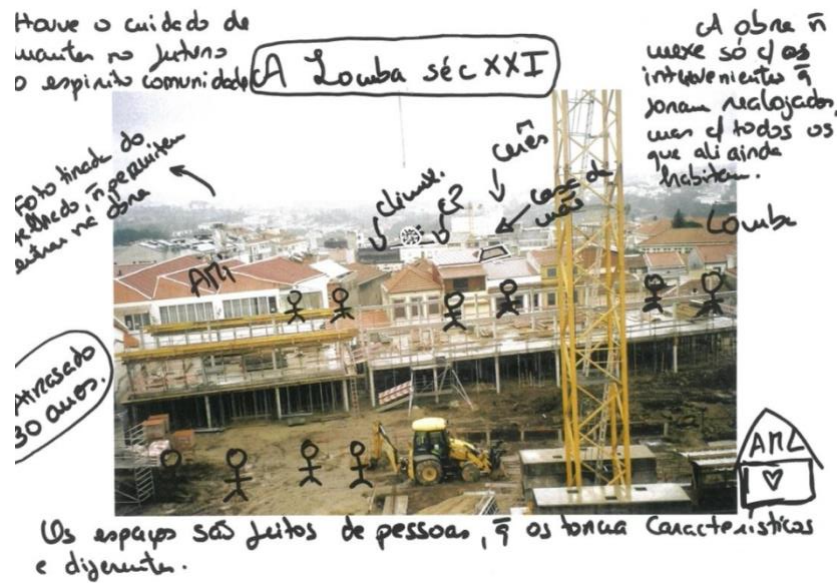 Houve o cuidado de
manter no futuro
o espirito comunidade
A Lomba séc XXI
A obra n̄
mexe só c/ os
intervenientes q̄
foram realojados,
mas c/ todos os
que ali ainda
habitam.
Foto tirada do
telhado n̄ permitem
entrar na obra
casa da
mãe
Lomba
AMi
Atrasado
30 anos.
AML
Os espaços são feitos de pessoas, q̄ os torna Característicos
e diferentes.